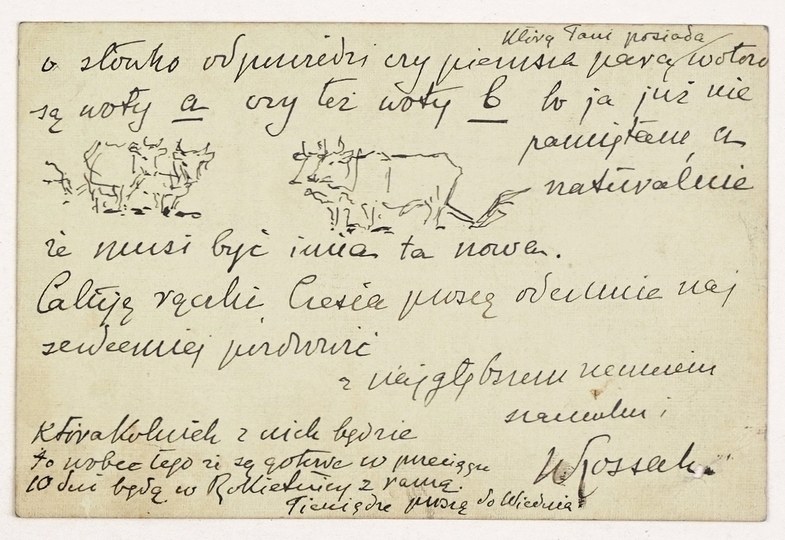 którą Pani posiada
o słówko odpowiedzi czy pierwsza para wołów
są woły a czy też woły b bo ja już nie
pamiętam, a
naturalnie
że musi być inna ta nowa.
Całuję rączki Czesia proszę odemnie naj
serdeczniej pozdrowić
z najgłębszem
szacunkiem
Którakolwiek z nich będzie
to wobec tego że są gotowe w przeciągu
10 dni będą w Rokietnicy z ramą.
Pieniądze proszę do Wiednia
WKossak